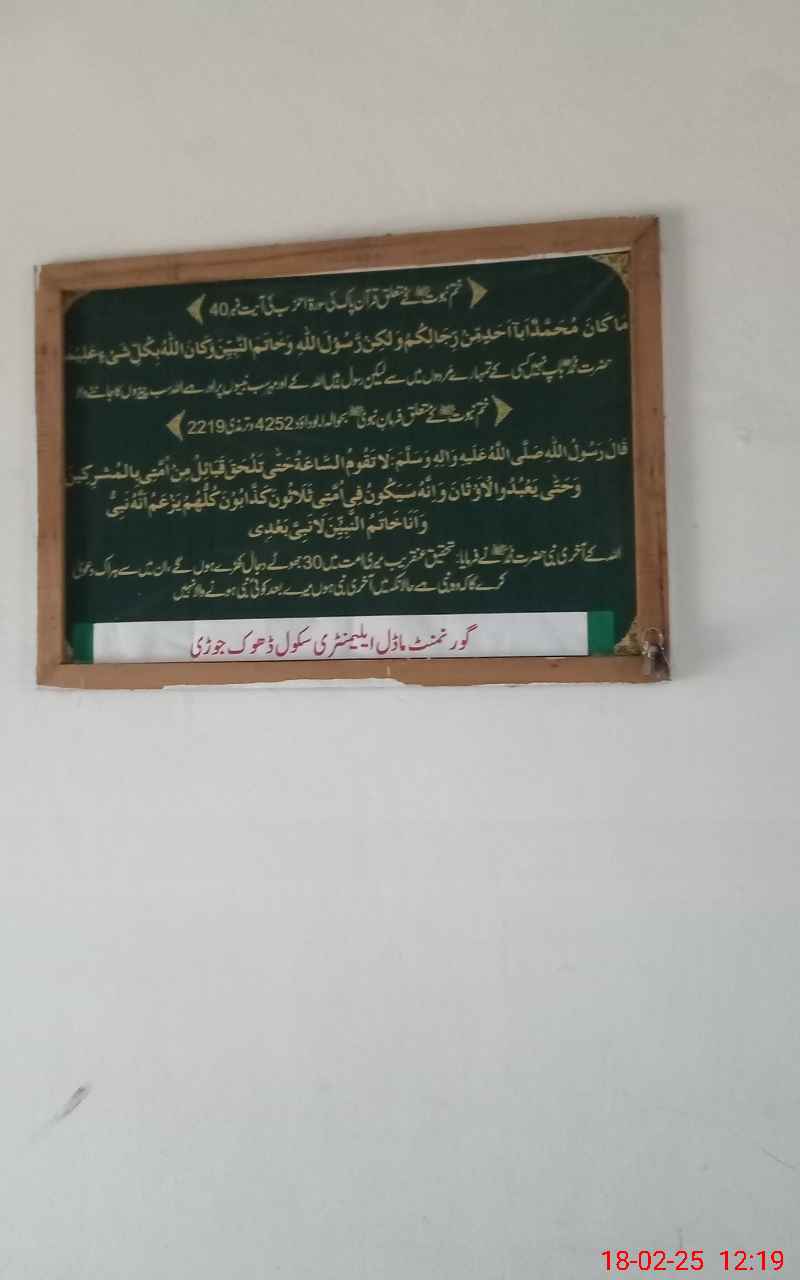 ختم نبوت ﷺ کے متعلق قرآن پاک کی سورۃ احزاب کی آیت نمبر 40
مَا كَانَ مُحَمَّدٌ اَبَآ اَحَدٍ مِّنْ رِّجَالِكُمْ وَلٰكِنْ رَّسُوْلَ اللّٰهِ وَخَاتَمَ النَّبِيّٖنَ وَكَانَ اللّٰهُ بِكُلِّ شَیْءٍ عَلِيْمًا
حضرت محمد ﷺ باپ نہیں کسی کے تمہارے مردوں میں سے لیکن رسول ہیں اللہ کے اور مہر سب نبیوں پر اور ہے اللہ سب چیزوں کا جاننے والا
ختم نبوت ﷺ کے متعلق فرمان نبوی ﷺ بحوالہ ابوداؤد 4252 و ترمذی 2219
قَالَ رَسُوْلُ اللّٰهِ صَلَّى اللّٰهُ عَلَيْهِ وَاٰلِهٖ وَسَلَّمَ: لَا تَقُوْمُ السَّاعَةُ حَتّٰى تَلْحَقَ قَبَائِلُ مِنْ اُمَّتِىْ بِالْمُشْرِكِيْنَ
وَحَتّٰى يَعْبُدُوا الْاَوْثَانَ وَاِنَّهٗ سَيَكُوْنُ فِىْ اُمَّتِىْ ثَلَاثُوْنَ كَذَّابُوْنَ كُلُّهُمْ يَزْعَمُ اَنَّهٗ نَبِىٌّ
وَاَنَا خَاتَمُ النَّبِيّٖنَ لَا نَبِىَّ بَعْدِى
اللہ کے آخری نبی حضرت محمد ﷺ نے فرمایا: تحقیق عنقریب میری امت میں 30 جھوٹے دجال کھڑے ہوں گے، ان میں سے ہر اک دعویٰ
کرے گا کہ وہ نبی ہے حالانکہ میں آخری نبی ہوں میرے بعد کوئی نبی ہونے والا نہیں
گورنمنٹ ماڈل ایلیمنٹری سکول ڈھوک جوڑی
18-02-25 12:19